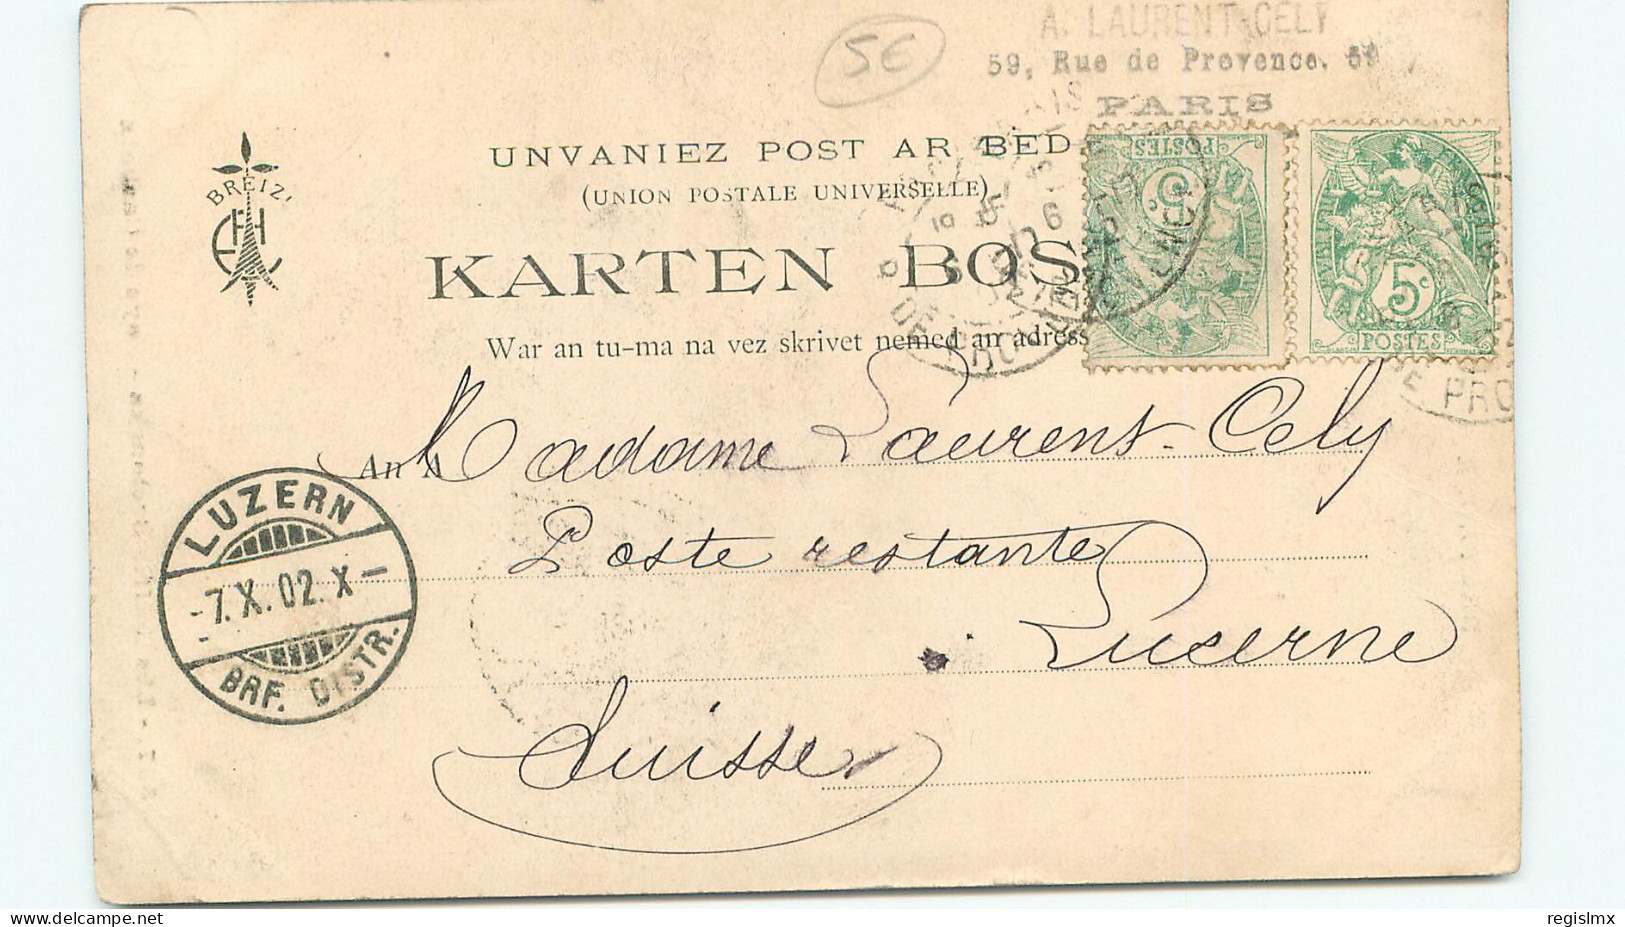 A. LAURENT-CELY
59, Rue de Provence, 59
PARIS
5E
UNVANIEZ POST AR BED
(UNION POSTALE UNIVERSELLE)
BREIZ
KARTEN BOS
War an tu-ma na vez skrivet nemed an adress
POSTES
5
5c
POSTES
DE PRO
An A
Madame Laurent-Cely
Poste restante
Lucerne
Suisse
LUZERN
-7.X.02.X-
BRF. DISTR.
regislmx